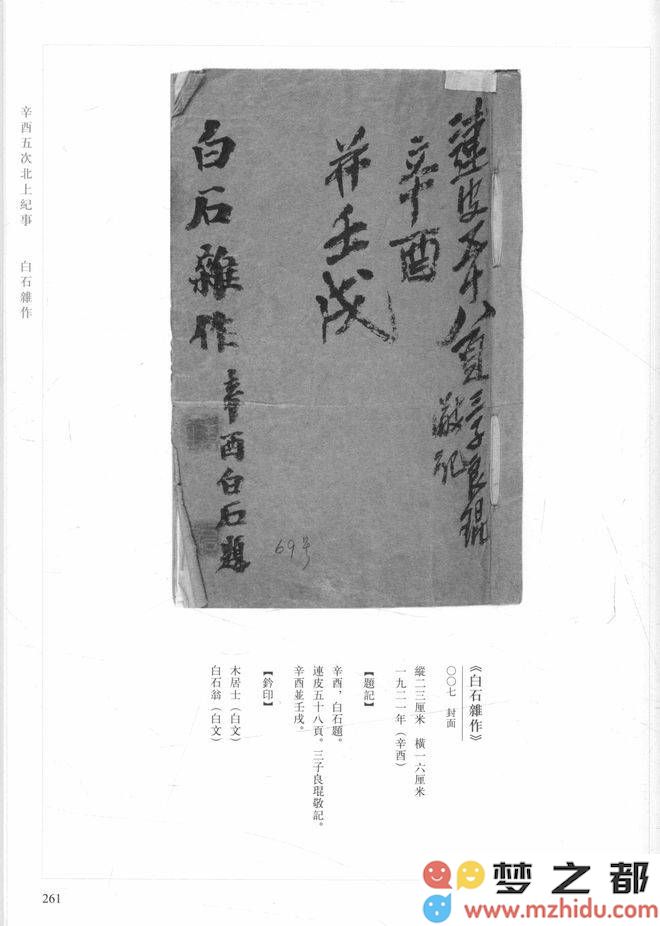 辛酉五次北上紀事 白石雜作
連皮五十八頁三子良琨
敬記
辛酉
并壬戌
白石雜作
辛酉白石題
69号
《白石雜作》
〇〇七 封面
縱二三厘米 橫一六厘米
一九二一年(辛酉)
【題記】
辛酉,白石題。
連皮五十八頁。三子良琨敬記。
辛酉並壬戌。
【鈐印】
木居士(白文)
白石翁(白文)
261
梦之都
www.mzhidu.com